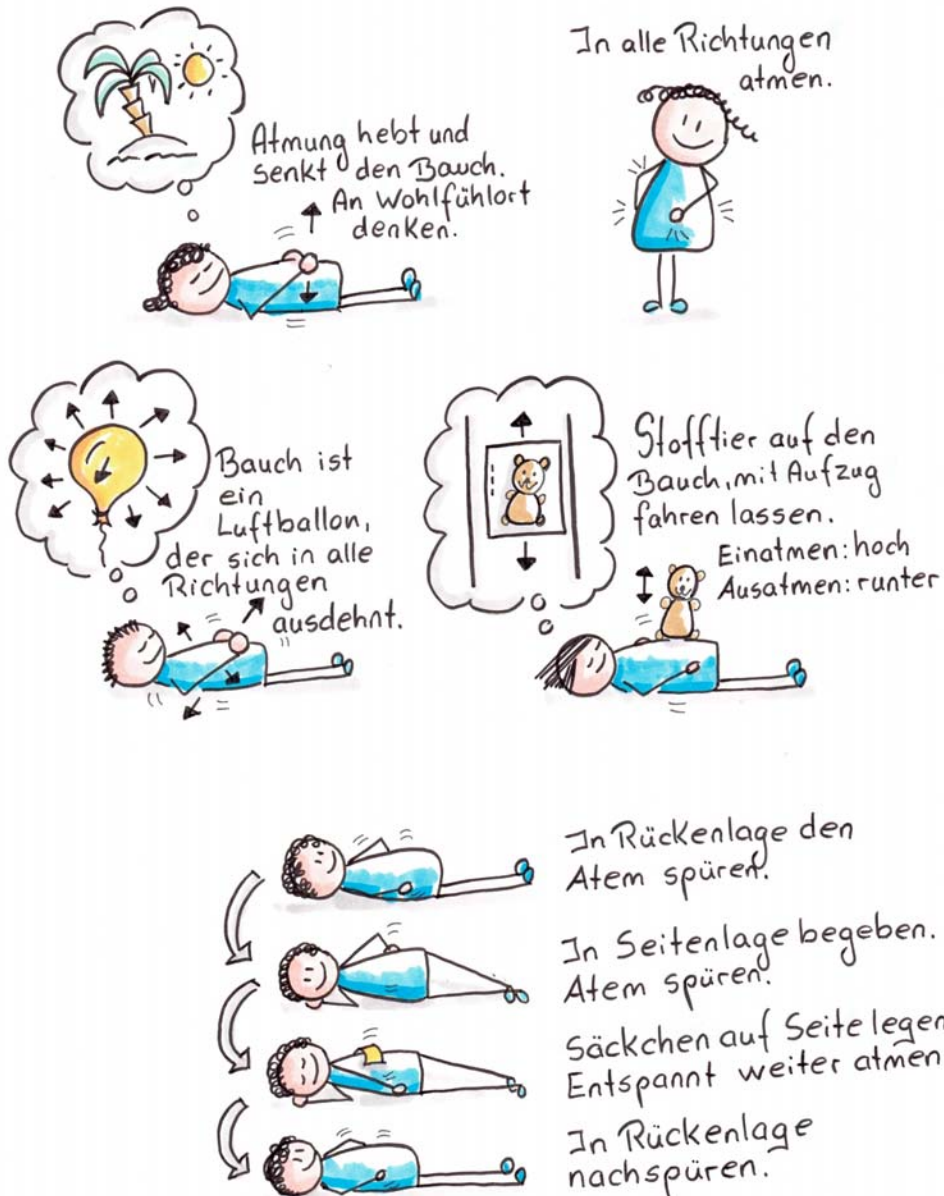 Atmung hebt und
senkt den Bauch.
An Wohlfühlort
denken.
In alle Richtungen
atmen.
Bauch ist
ein
Luftballon,
der sich in alle
Richtungen
ausdehnt.
Stofftier auf den
Bauch, mit Aufzug
fahren lassen.
Einatmen: hoch
Ausatmen: runter
In Rückenlage den
Atem spüren.
In Seitenlage begeben.
Atem spüren.
Säckchen auf Seite legen
Entspannt weiter atmen
In Rückenlage
nachspüren.